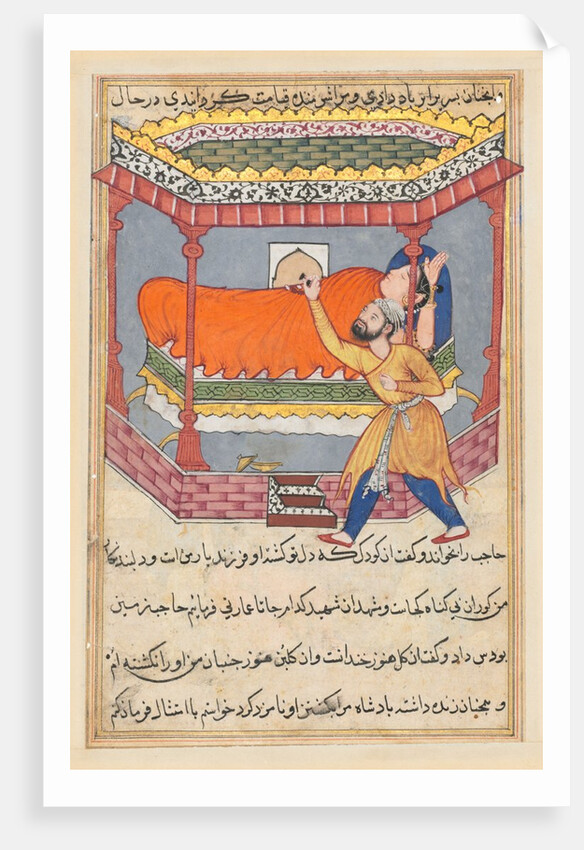 و همچنان بسر برابر باد دادی و مرا شرمنده قیامت گردانیدی در حال
حاجب را بخواند و گفت ان کودک که دل تو کشته او فرزند بار من است و دلبند
من کور ان بی کناه کجاست و شهد ان شهید کدام جاتا عمارتی فرمایم حاجب زمین
بوس داد و گفت ان کل هنوز خندانست وان کلبن هنوز جنبان من او را نکشته ام
و همچنان زنده داشته بادشاه مرا بکشتن او نامزد کرد خواستم با امتثال فرمان